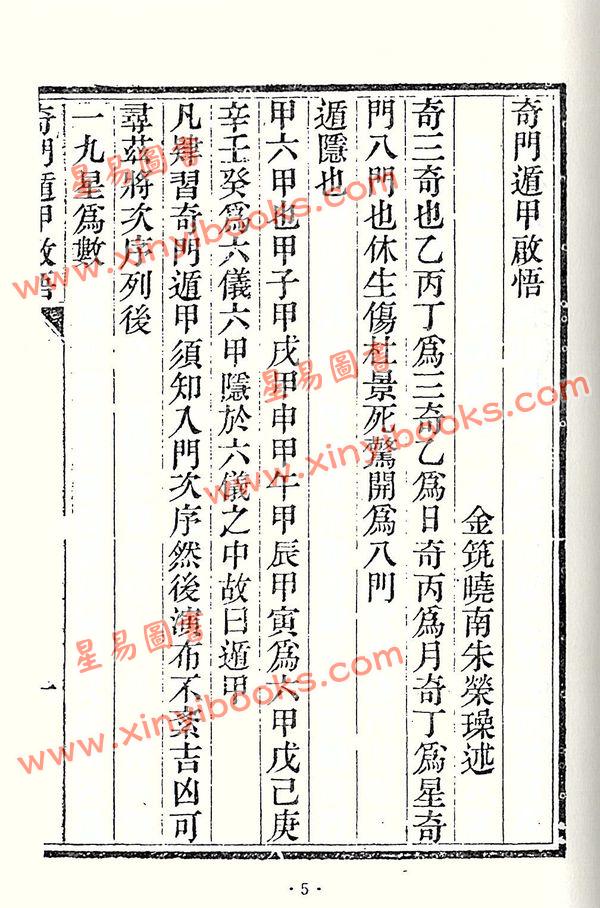 奇門遁甲啟悟
金筑曉南朱榮璪述
奇三奇也乙丙丁爲三奇乙爲日奇丙爲月奇丁爲星奇
門八門也休生傷杜景死驚開爲八門
遁隱也
甲六甲也甲子甲戌甲申甲午甲辰甲寅爲六甲戊己庚
辛壬癸爲六儀六甲隱於六儀之中故曰遁甲
凡肄習奇門遁甲須知入門次序然後演布不紊吉凶可
尋茲將次序列後
一九星爲數
奇門遁甲啟悟
一
· 5 ·
星易圖書
www.xinyibooks.com
星易圖書
www.xinyibooks.com
星易圖書
www.xinyibooks.com